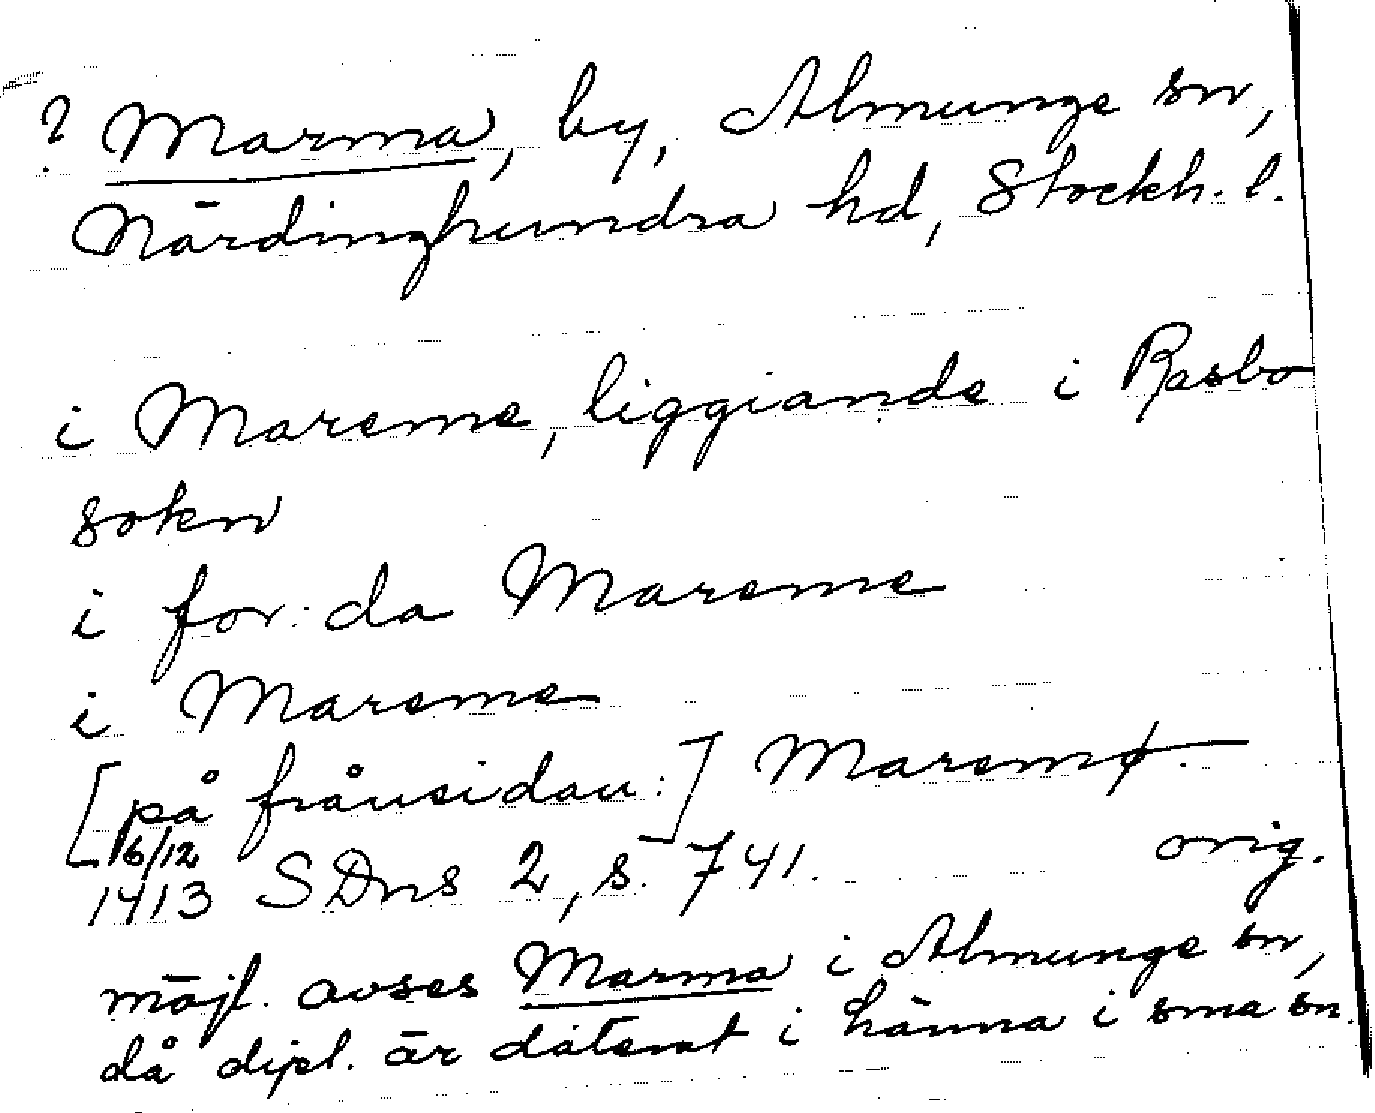 ? Marma, by, Almunge sn,
Närdinghundra hd, Stockh. l.
i Mareme, liggiande i Rasbo
sokn
i for:da Mareme
i Mareme
[på frånsidan:] Maremø.
16/12
1413 SDns 2, s. 741. orig.
möjl. avses Marma i Almunge sn,
då dipl. är daterat i Länna i sma sn.